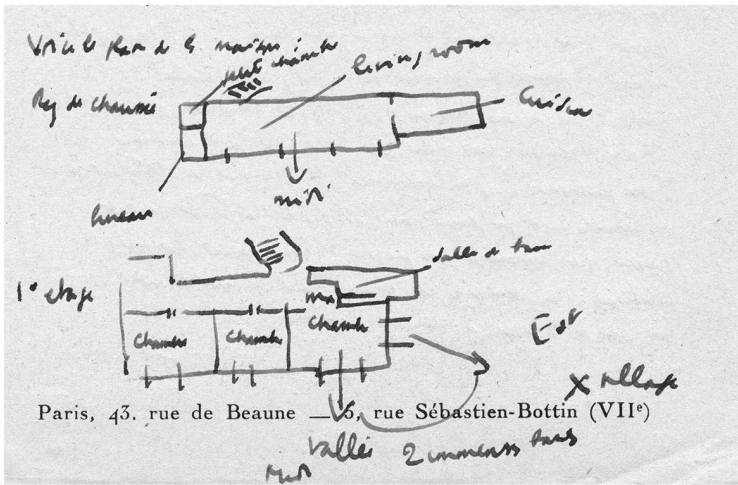 Voici le plan de la maison :
petite chambre
living room
Rez de chaussée
Cuisine
midi
bureau
salle de bain
1er etage
Chambre
Chambre
Chambre
Est
X village
Paris, 43, rue de Beaune — 5, rue Sébastien-Bottin (VIIe)
Vallée
2 immenses
Midi